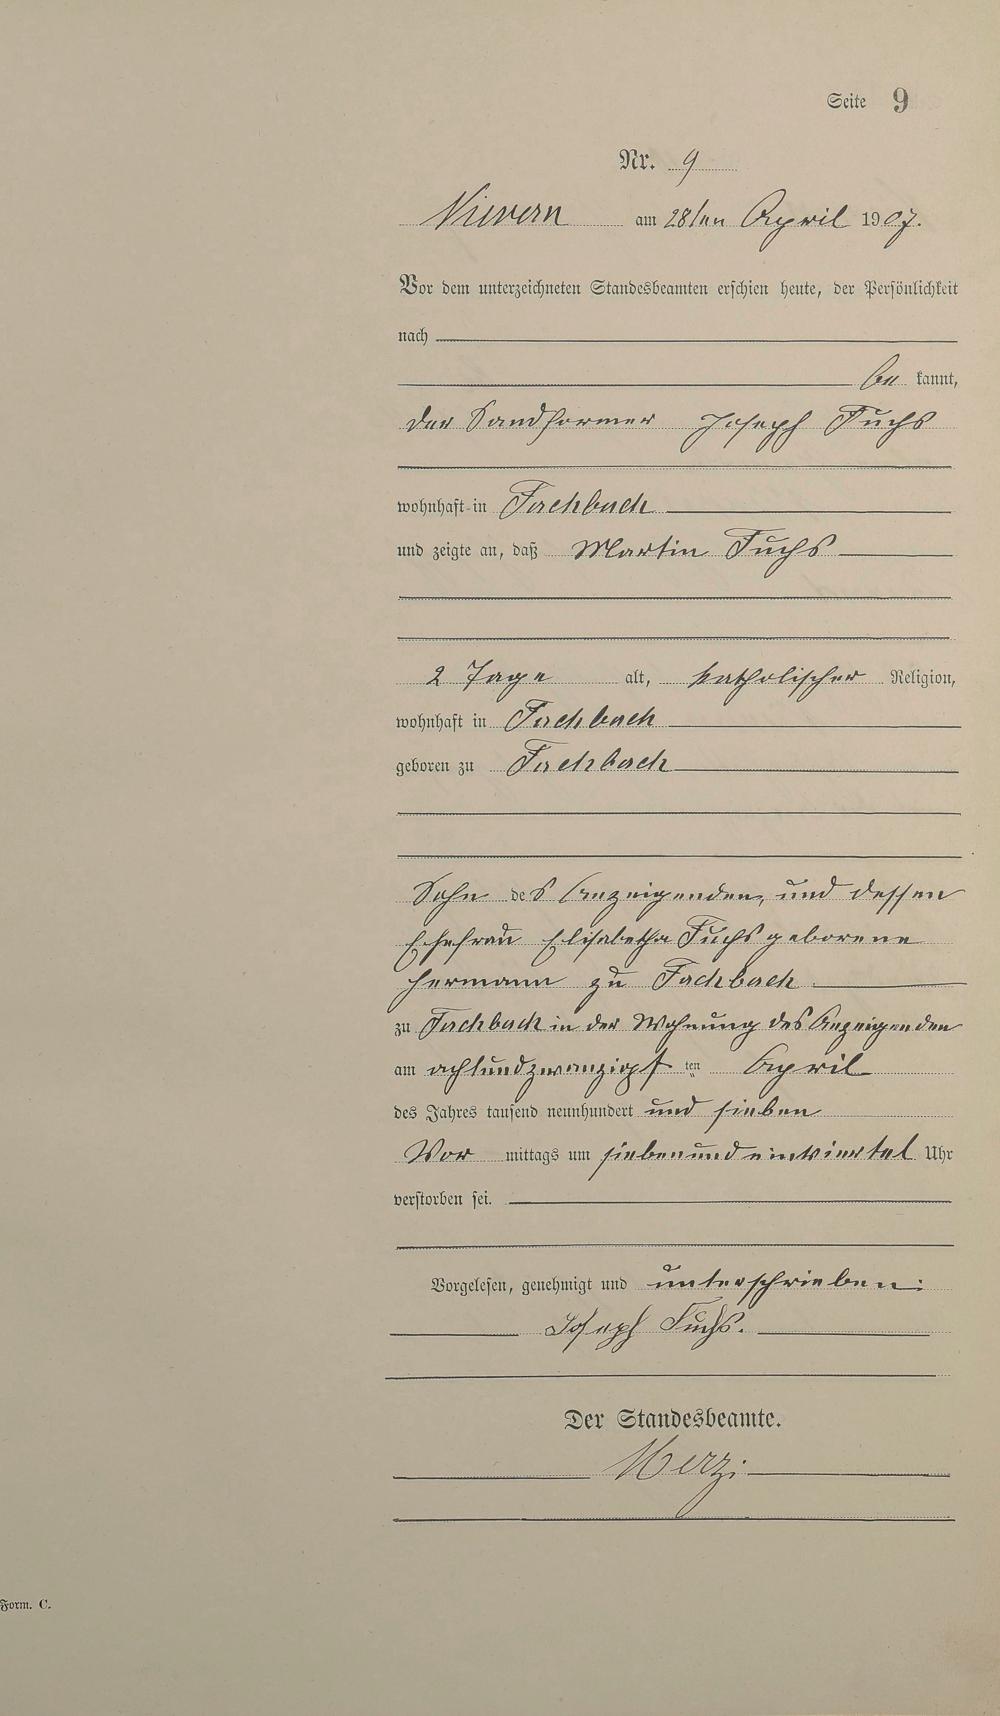 Seite 9
Nr. 9
Nievern am 28ten April 1907.
Vor dem unterzeichneten Standesbeamten erschien heute, der Persönlichkeit
nach
be kannt,
der Sandformer Joseph Fuchs
wohnhaft in Fachbach
und zeigte an, daß Martin Fuchs
2 Tage alt, katholischer Religion,
wohnhaft in Fachbach
geboren zu Fachbach
Sohn des Anzeigenden, und dessen
Ehefrau Elisabetha Fuchs geborene
Hermann zu Fachbach
zu Fachbach in der Wohnung des Anzeigenden
am achtundzwanzigst ten April
des Jahres tausend neunhundert und sieben
Vor mittags um siebenundeinviertel Uhr
verstorben sei.
Vorgelesen, genehmigt und unterschrieben:
Joseph Fuchs.
Der Standesbeamte.
Herzi
Form. C.